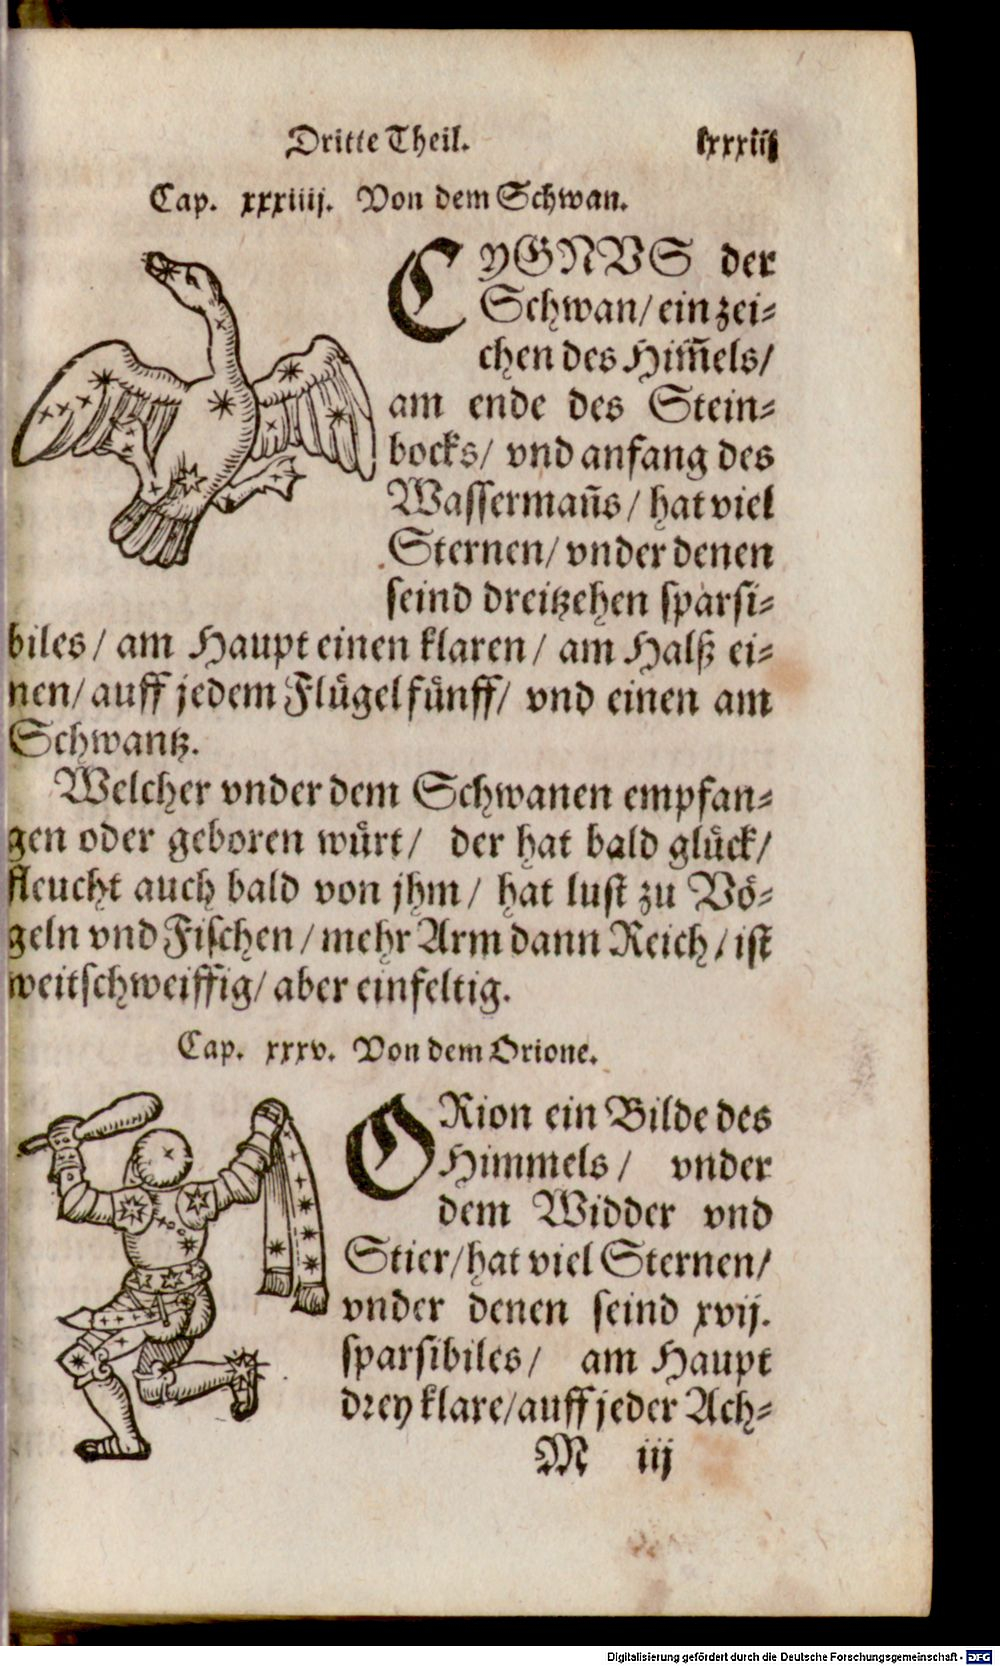 Dritte Theil. lxxxiij
Cap. xxxiiij. Von dem Schwan.
CYGNVS der
Schwan/ ein zei-
chen des Him̃els/
am ende des Stein-
bocks/ vnd anfang des
Wassermañs/ hat viel
Sternen/ vnder denen
seind dreitzehen sparsi-
biles/ am Haupt einen klaren/ am Halß ei-
nen/ auff jedem Flügel fünff/ vnd einen am
Schwantz.
Welcher vnder dem Schwanen empfan-
gen oder geboren würt/ der hat bald glück/
fleucht auch bald von jhm/ hat lust zu Vö-
geln vnd Fischen/ mehr Arm dann Reich/ ist
weitschweiffig/ aber einfeltig.
Cap. xxxv. Von dem Orione.
ORion ein Bilde des
Himmels/ vnder
dem Widder vnd
Stier/ hat viel Sternen/
vnder denen seind xvij.
sparsibiles/ am Haupt
drey klare/ auff jeder Ach-
M iij
Digitalisierung gefördert durch die Deutsche Forschungsgemeinschaft - DFG